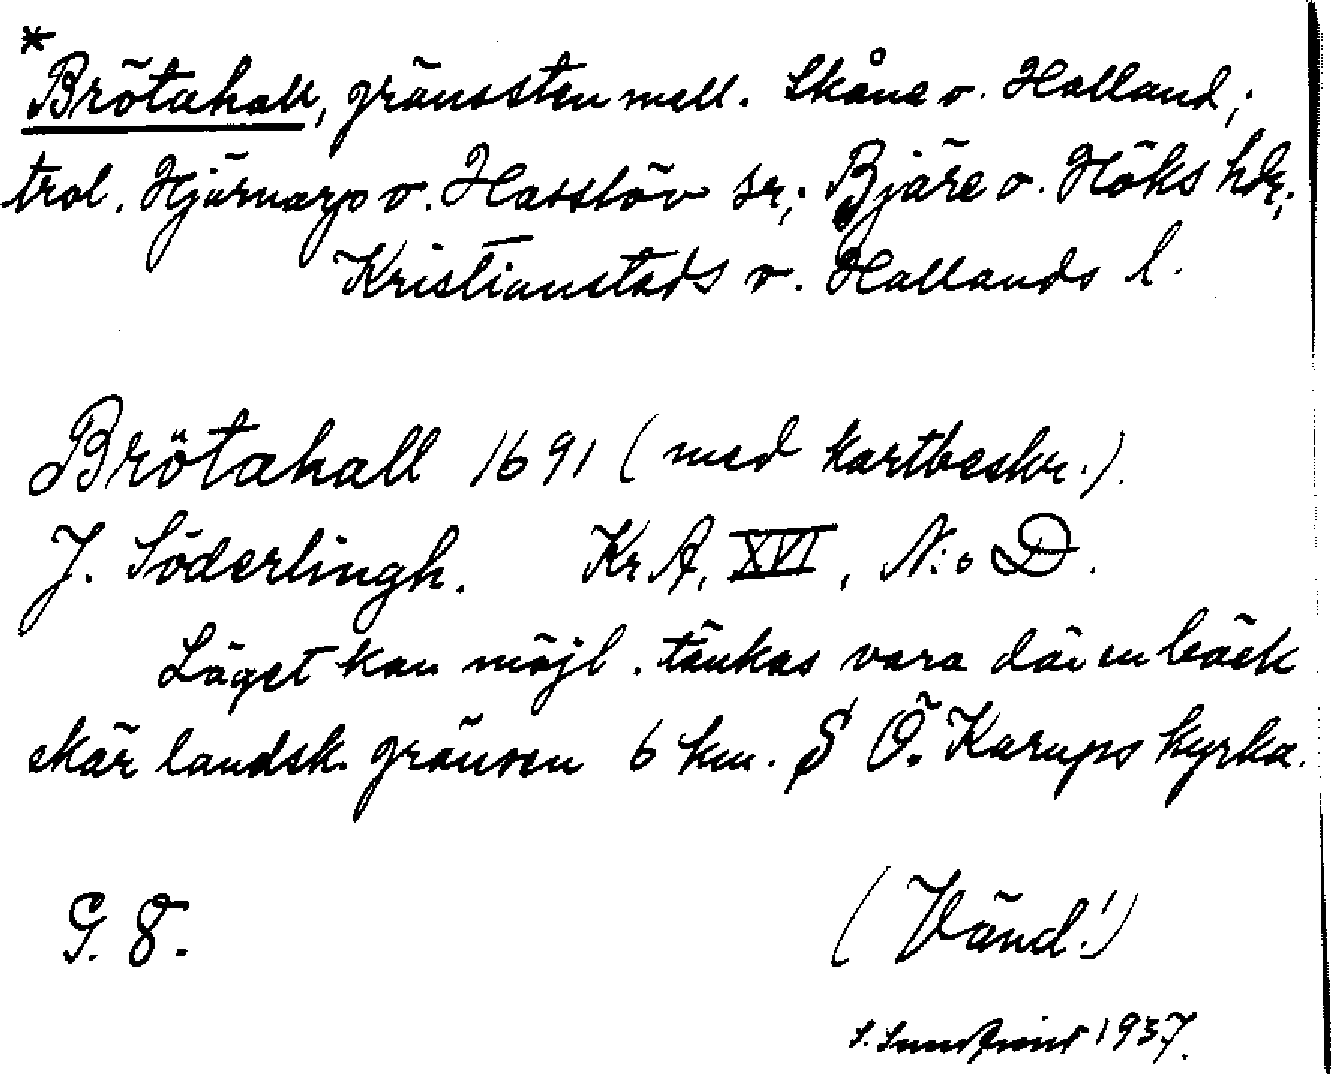 *
Brötahall, gränssten mell. Skåne o. Halland;
trol. Hjärnarp o. Hasslöv sr,; Bjäre o. Höks hdr;
Kristianstads o. Hallands l.
Brötahall 1691 (med kartbeskr.).
J. Söderlingh. Kr A, XVI, N:o D.
Läget kan möjl. tänkas vara där en bäck
skär landsk. gränsen 6 km. S Ö. Karups kyrka.
G. 8.
(Vänd!)
1937.